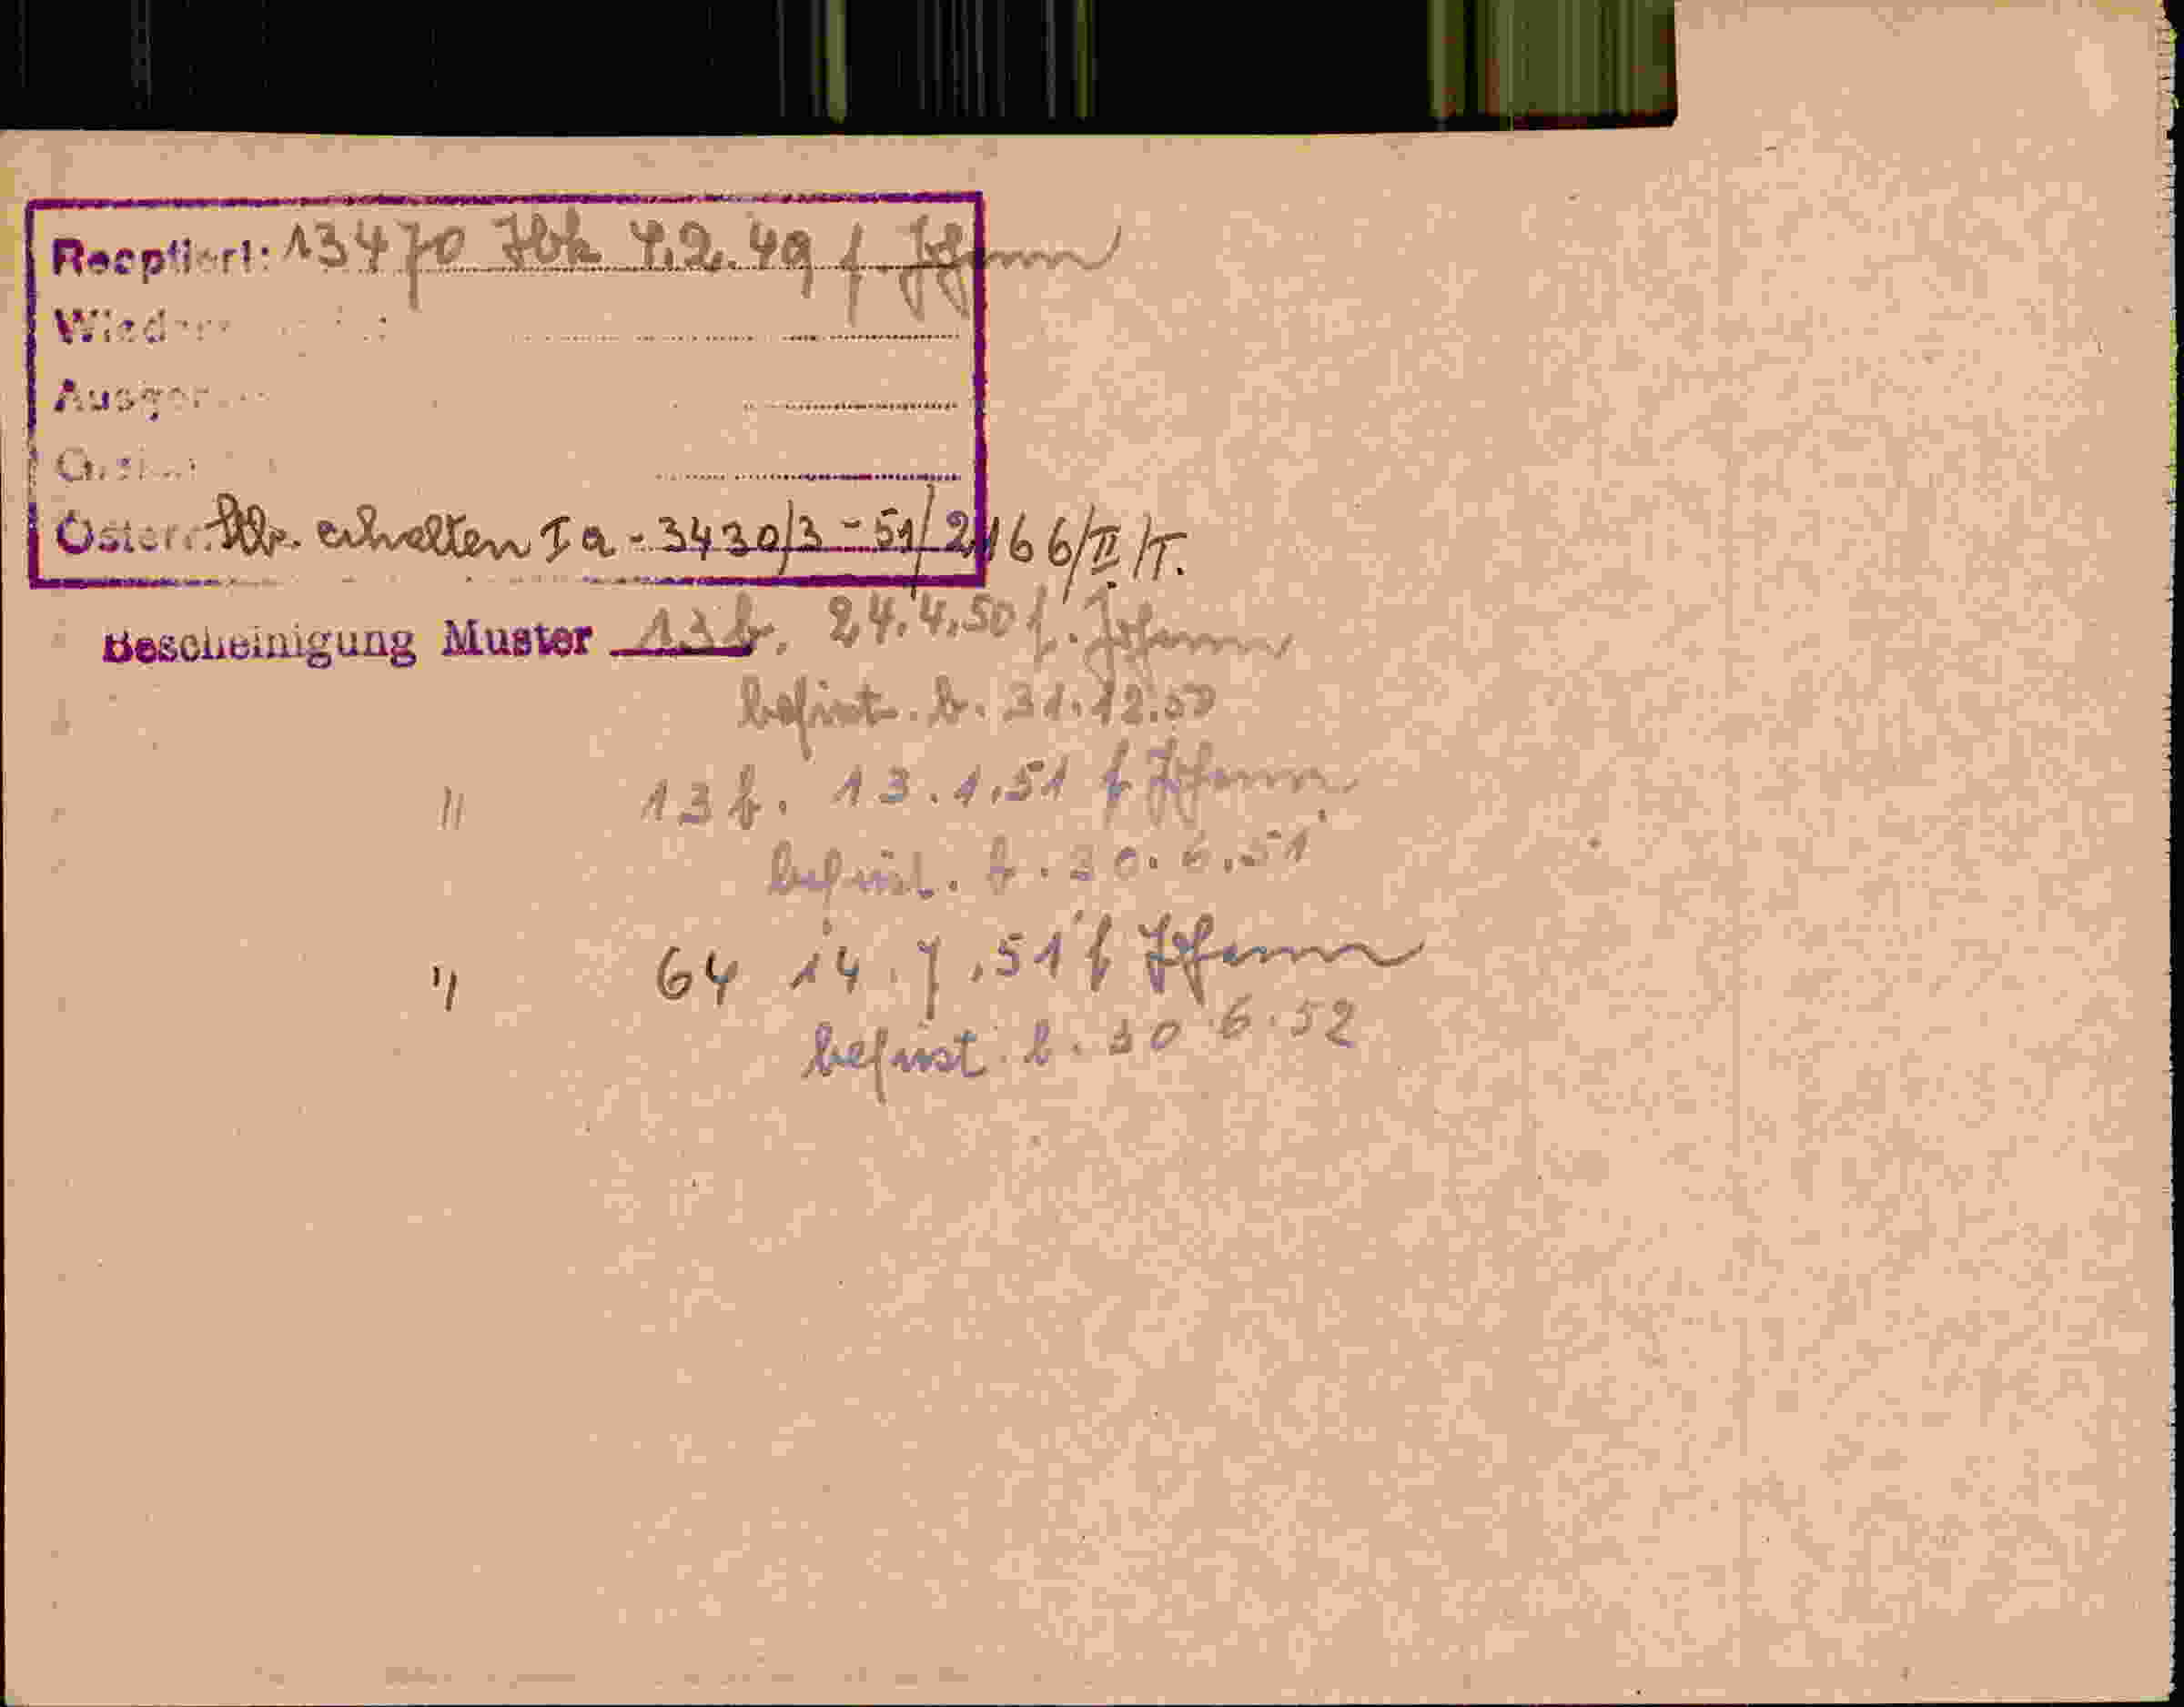 Reeptiert: 13470 Jbk 4.2.49 f. Johann
Österr. Stb. erhalten Ia - 3430/3 - 51/2166/II/T.
Bescheinigung Muster 13b. 24.4.50 f. Johann
befrist. b. 31.12.50
" 13b. 13.1.51 f Johann
befrist. b. 30.6.51
" 64 14.7.51 f Johann
befrist. b. 30.6.52